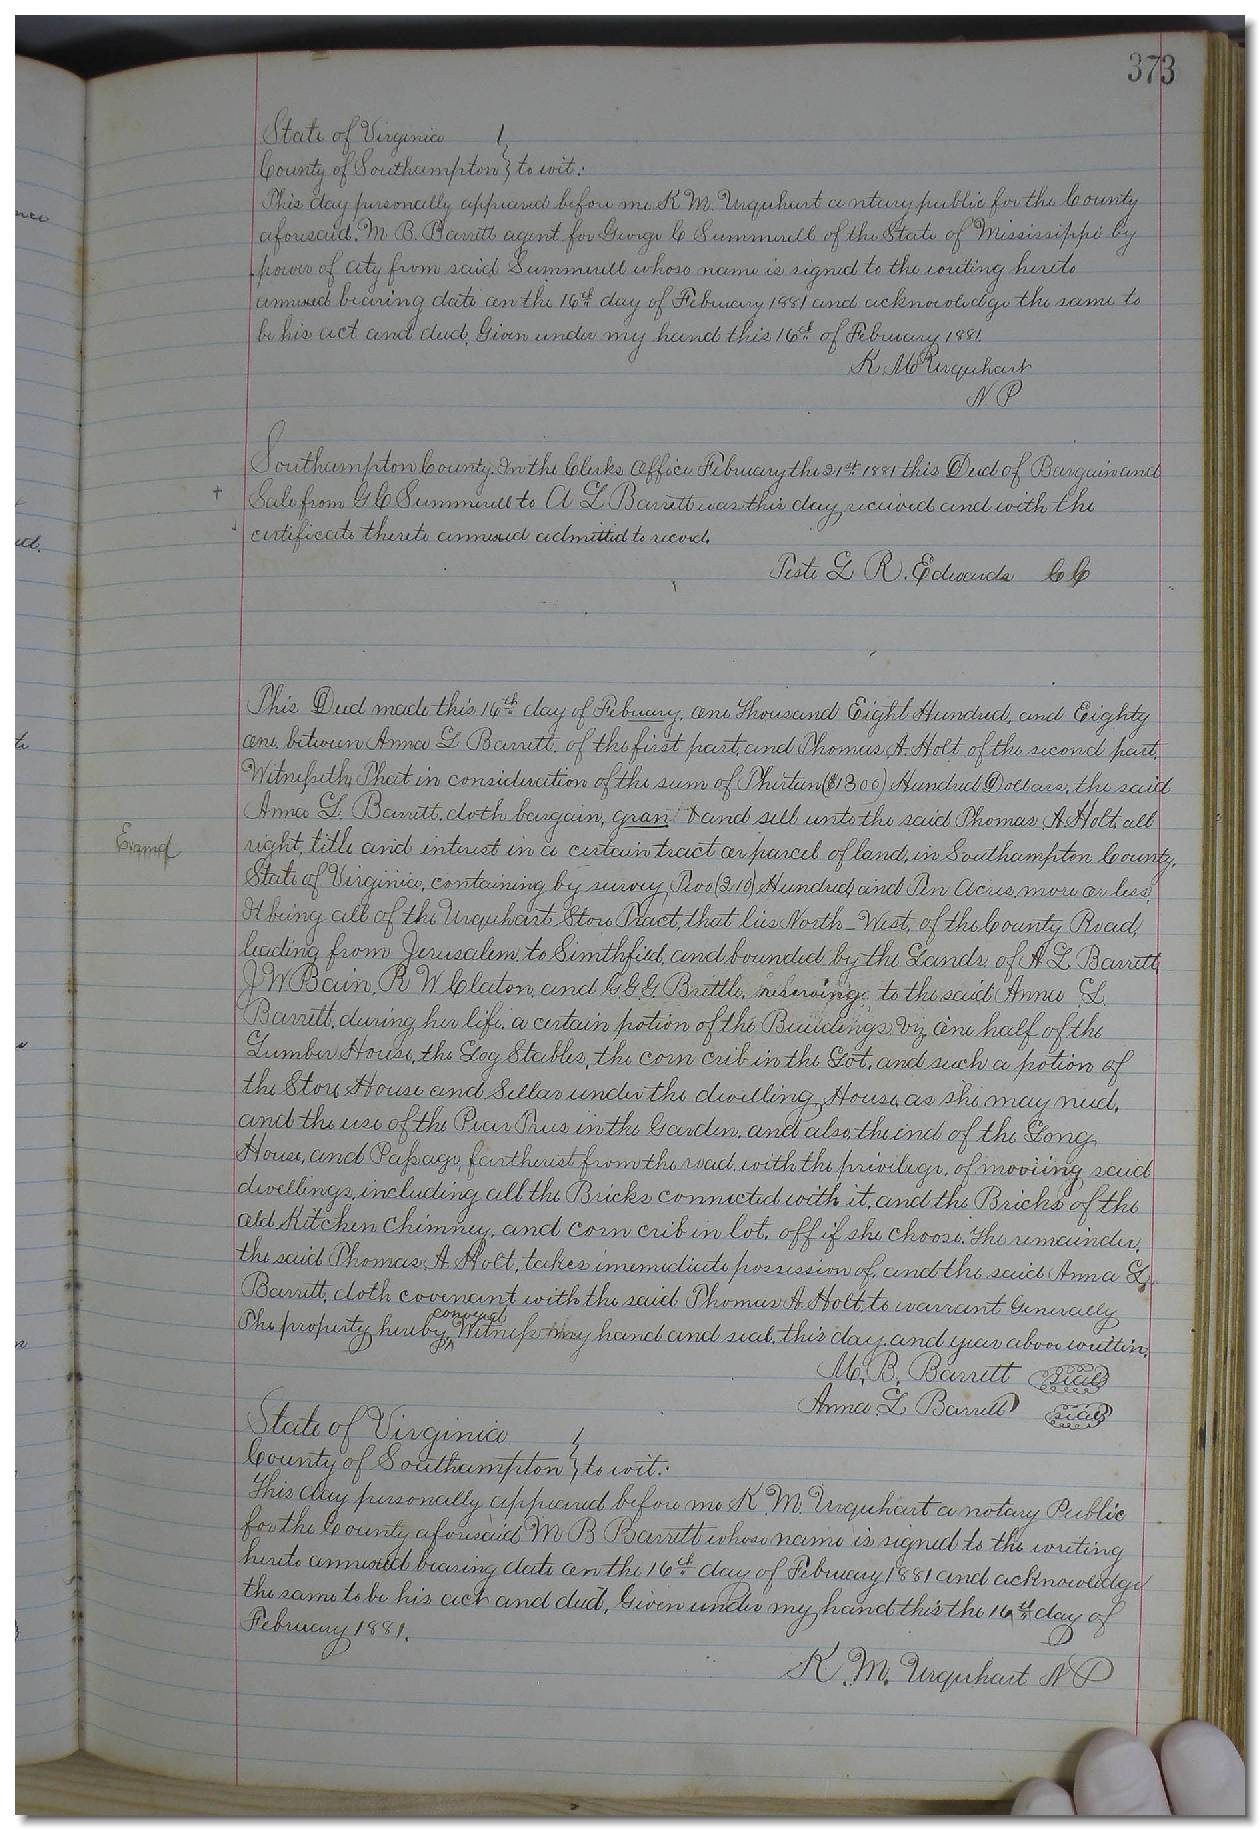 373
State of Virginia
County of Southampton } to wit:
This day personally appeared before me K. M. Urquhart a ntary public for the County
aforesaid. M B. Barrett agent for George C Summerell of the State of Mississippi by
power of atty from said Summerell whose name is signed to the writing hereto
annexed bearing date on the 16th day of February 1881 and acknowledge the same to
be his act and deed, Given under my hand this 16th of February 1881.
K. M Urquhart
N P
Southampton County. In the Clerks Office February the 21st 1881 this Deed of Bargain and
Sale from G C Summerell to A L Barrett was this day received and with the
certificate thereto annexed admitted to record.
Teste L R. Edwards C C
This Deed made this 16th day of Febuary, one Thousand Eight Hundred, and Eighty
one, between Anna L Barrett, of the first part, and Thomas A. Holt of the second part,
Witnesseth, That in consideration of the sum of Thirteen ($1300) Hundred Dollars, the said
Anna L. Barrett, doth bargain, grant and sell unto the said Thomas A Holt, all
Examd
right, title and interest in a certain tract or parcel of land, in Southampton County,
State of Virginia, containing by survey, Two (210) Hundred, and Ten Acres, more or less,
It being all of the Urquhart Store Tract, that lies North-West, of the County Road,
leading from Jerusalem to Simthfied, and bounded by the Lands, of A L Barrett
J W Bain, R W Claton, and C G G Brittle, reserving to the said Anna L.
Barrett, during her life, a certain potion of the Buildings Viz, one half of the
Lumber House, the Log Stables, the corn crib in the Lot, and such a potion of
the Store House and Sellar under the dwelling House, as she may need,
and the use of the Pear Trees in the Garden, and also, the end of the Long
House, and Passage, fartherist from the road, with the privilege, of mooving said
dwellings, including all the Bricks connected with it, and the Bricks of the
old Kitchen Chimney, and corn crib in lot, off if she choose, The remainder,
the said Thomas A Holt, takes imemediate possession of, and the said Anna L
Barrett, doth covenant with the said Thomas A Holt, to warrant Generally
The property hereby conveyed Witness my hand and seal, this day, and year above written,
M. B. Barrett Seal
Anna L Barrett Seal
State of Virginia
County of Southampton } to wit:
This day personally appeared before me K. M. Urquhart a notary Public
for the County aforesaid M B Barrett whose name is signed to the writing
hereto annexed bearing date on the 16th day of February 1881 and acknowledge
the same to be his act and deed, Given under my hand this the 16th day of
February 1881.
K. M. Urquhart N P